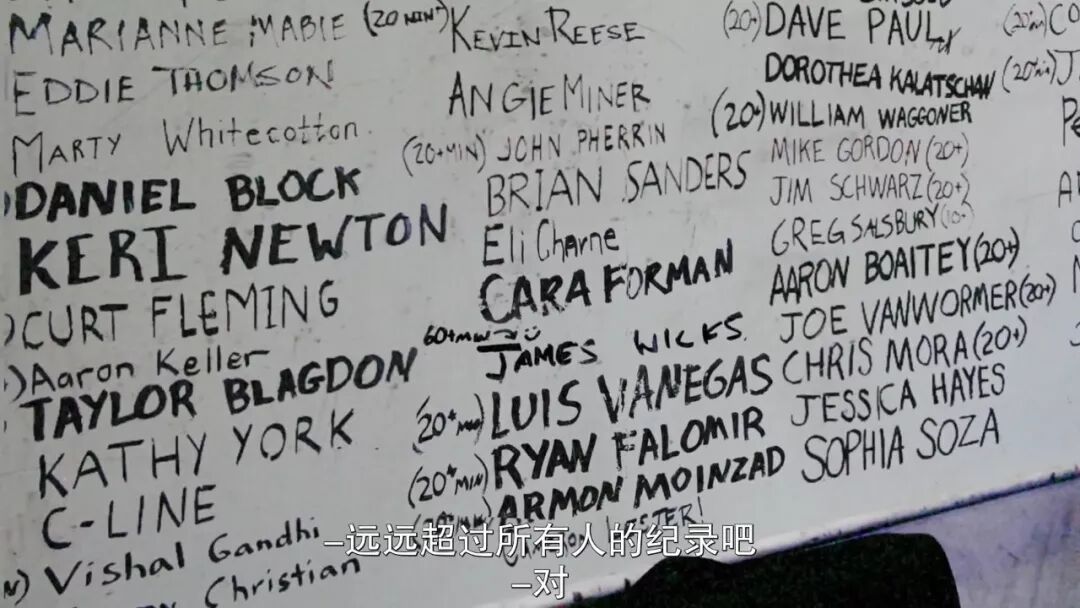 MARIANNE MABIE (20 MIN+)
EDDIE THOMSON
MARTY Whitecotton
DANIEL BLOCK
KERI NEWTON
CURT FLEMING
Aaron Keller
TAYLOR BLAGDON
KATHY YORK
C-LINE
Vishal Gandhi
Christian
KEVIN REESE
ANGIE MINER
(20+MIN) JOHN PHERRIN
BRIAN SANDERS
Eli Charne
CARA FORMAN
60+MIN
JAMES WICKS
(20+ MIN) LUIS VANEGAS
(20+ MIN) RYAN FALOMIR
ARMON MOINZAD
(20+) DAVE PAUL
DOROTHEA KALATSCHAN (20+MIN)
(20+) WILLIAM WAGGONER
MIKE GORDON (20+)
JIM SCHWARZ (20+)
GREG SALSBURY
AARON BOAITEY (20+)
JOE VANWORMER (20+)
CHRIS MORA (20+)
JESSICA HAYES
SOPHIA SOZA
-远远超过所有人的纪录吧
-对